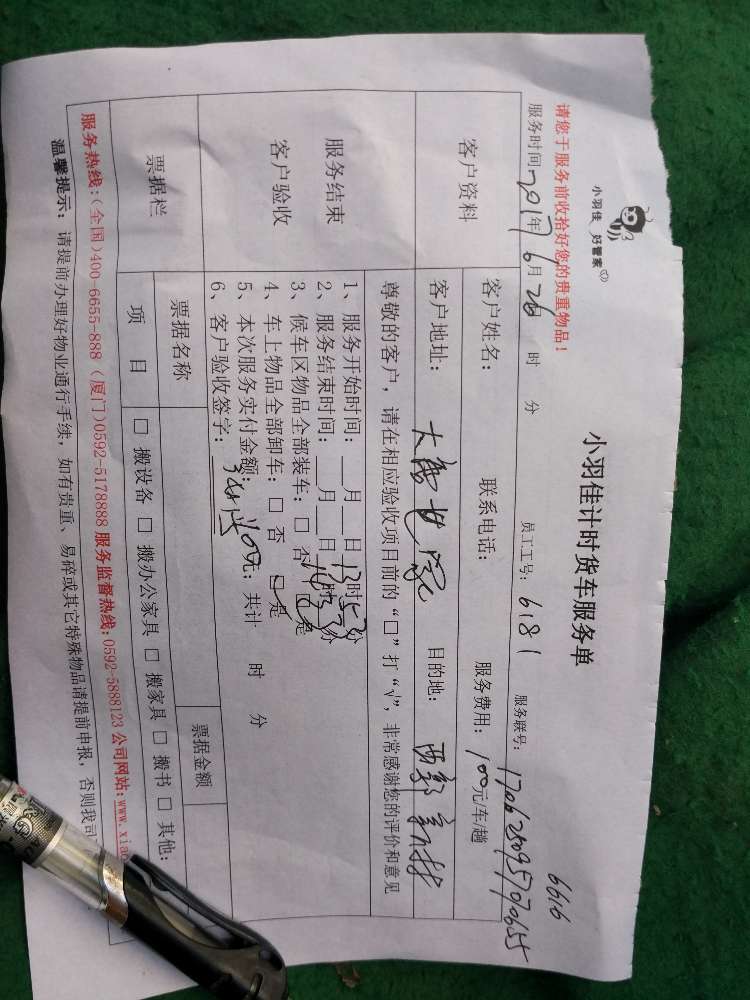 小羽佳 好管家
小羽佳计时货车服务单
6616
请您于服务前收拾好您的贵重物品!
服务时间:2017年6月26 时 分 员工工号: 6181 服务联号:
客户资料
客户姓名: 联系电话: 服务费用: 100元/车/趟
客户地址: 目的地:
服务结束
客户验收
尊敬的客户,请在相应验收项目前的“□”打“√”,非常感谢您的评价和意见
1、服务开始时间:__月__日13时53分
2、服务结束时间:__月__日 时 分
3、候车区物品全部装车:□ 否 □ 是
4、车上物品全部卸车:□ 否 □ 是
5、本次服务实付金额: 元;共计 时 分
6、客户验收签字:
票据栏
票据名称 票据金额
项 目 □ 搬设备 □ 搬办公家具 □ 搬家具 □ 搬书 □ 其他:
服务热线:(全国)400-6655-888 (厦门)0592-5178888 服务监督热线:0592-5888123 公司网站:www.xiao
温馨提示:请提前办理好物业通行手续,如有贵重、易碎或其它特殊物品请提前申报,否则我司